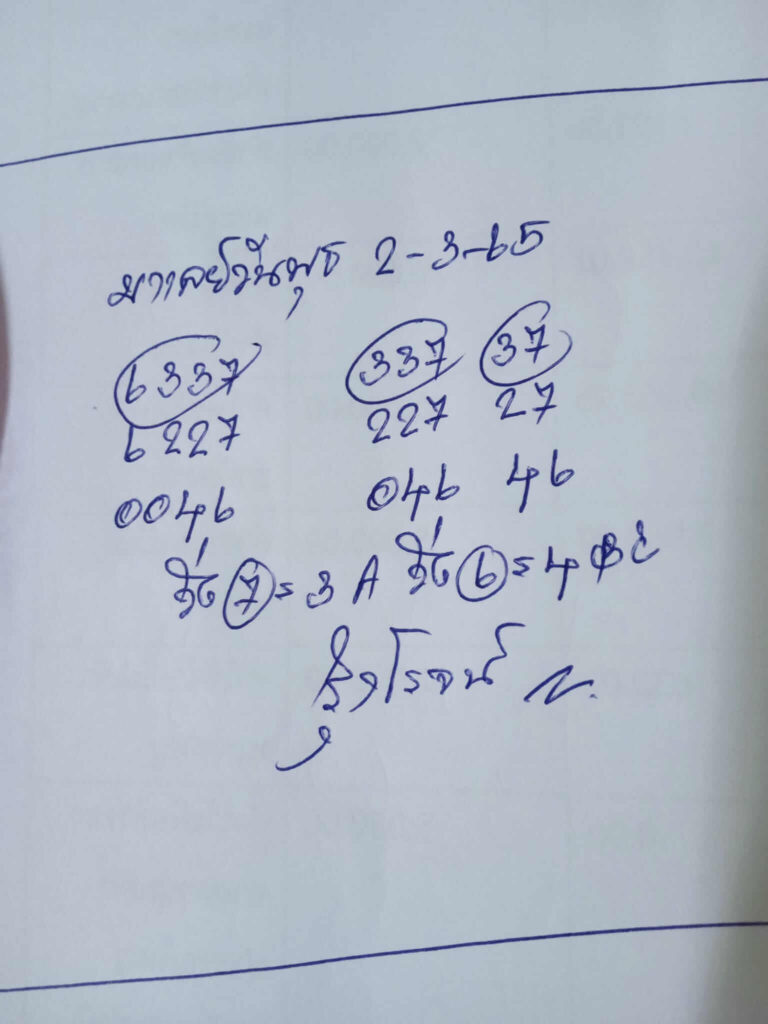 มาเลย์วันพุธ 2-3-65
6337 337 37
6227 227 27
0046 046 46
วิ่ง 7 = 3 A วิ่ง 6 = 4
โรจน์ N.